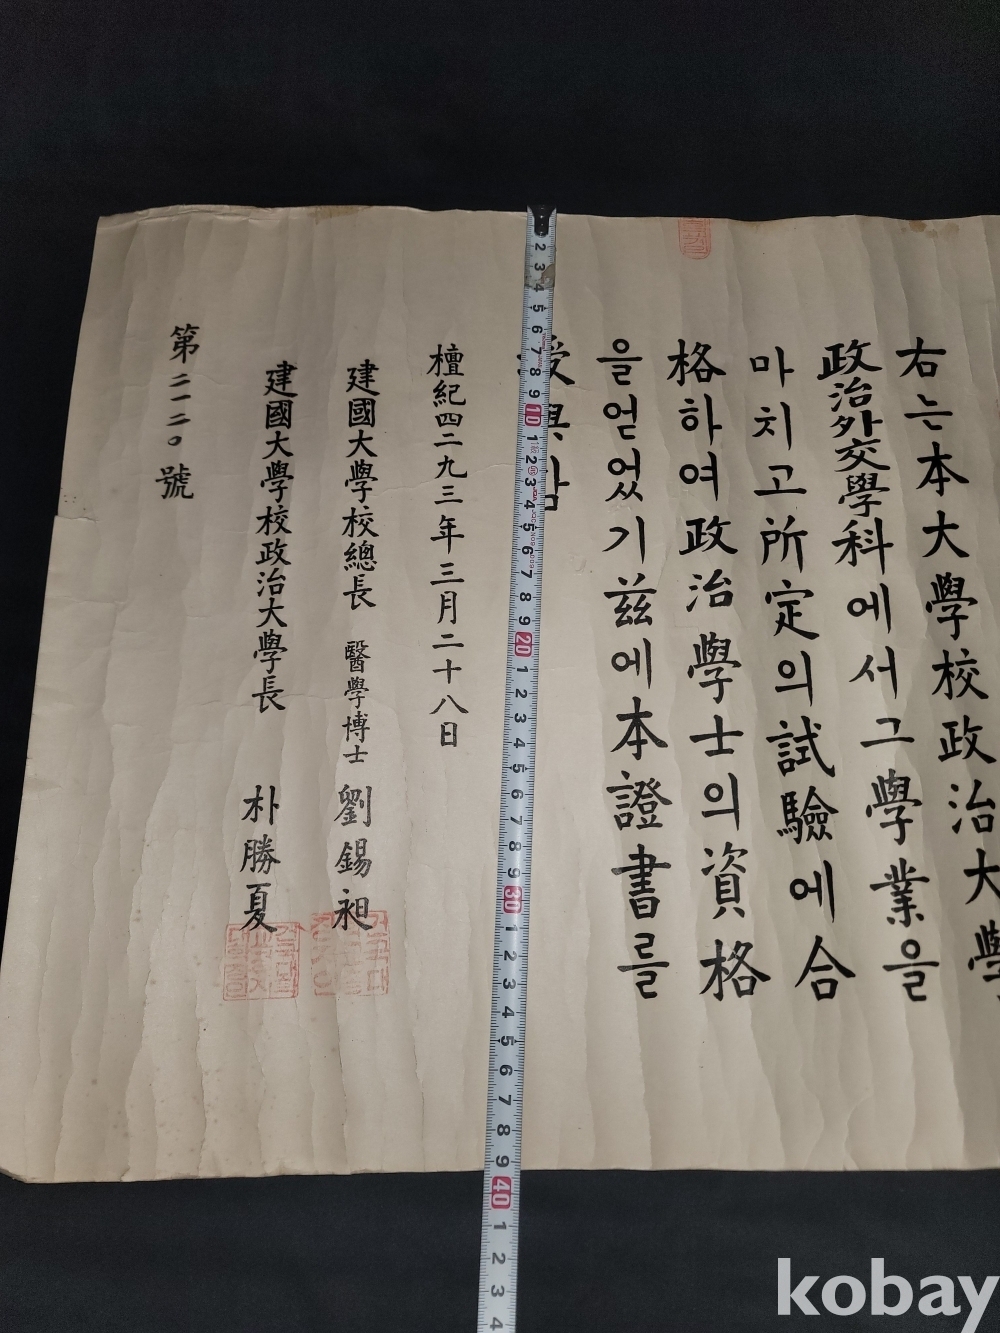 右는本大學校政治大學
政治外交學科에서그學業을
마치고所定의試驗에合
格하여政治學士의資格
을얻었기玆에本證書를
授與함
檀紀四二九三年三月二十八日
建國大學校總長 醫學博士 劉錫昶
建國大學校政治大學長 朴勝夏
第二一二〇號
kobay